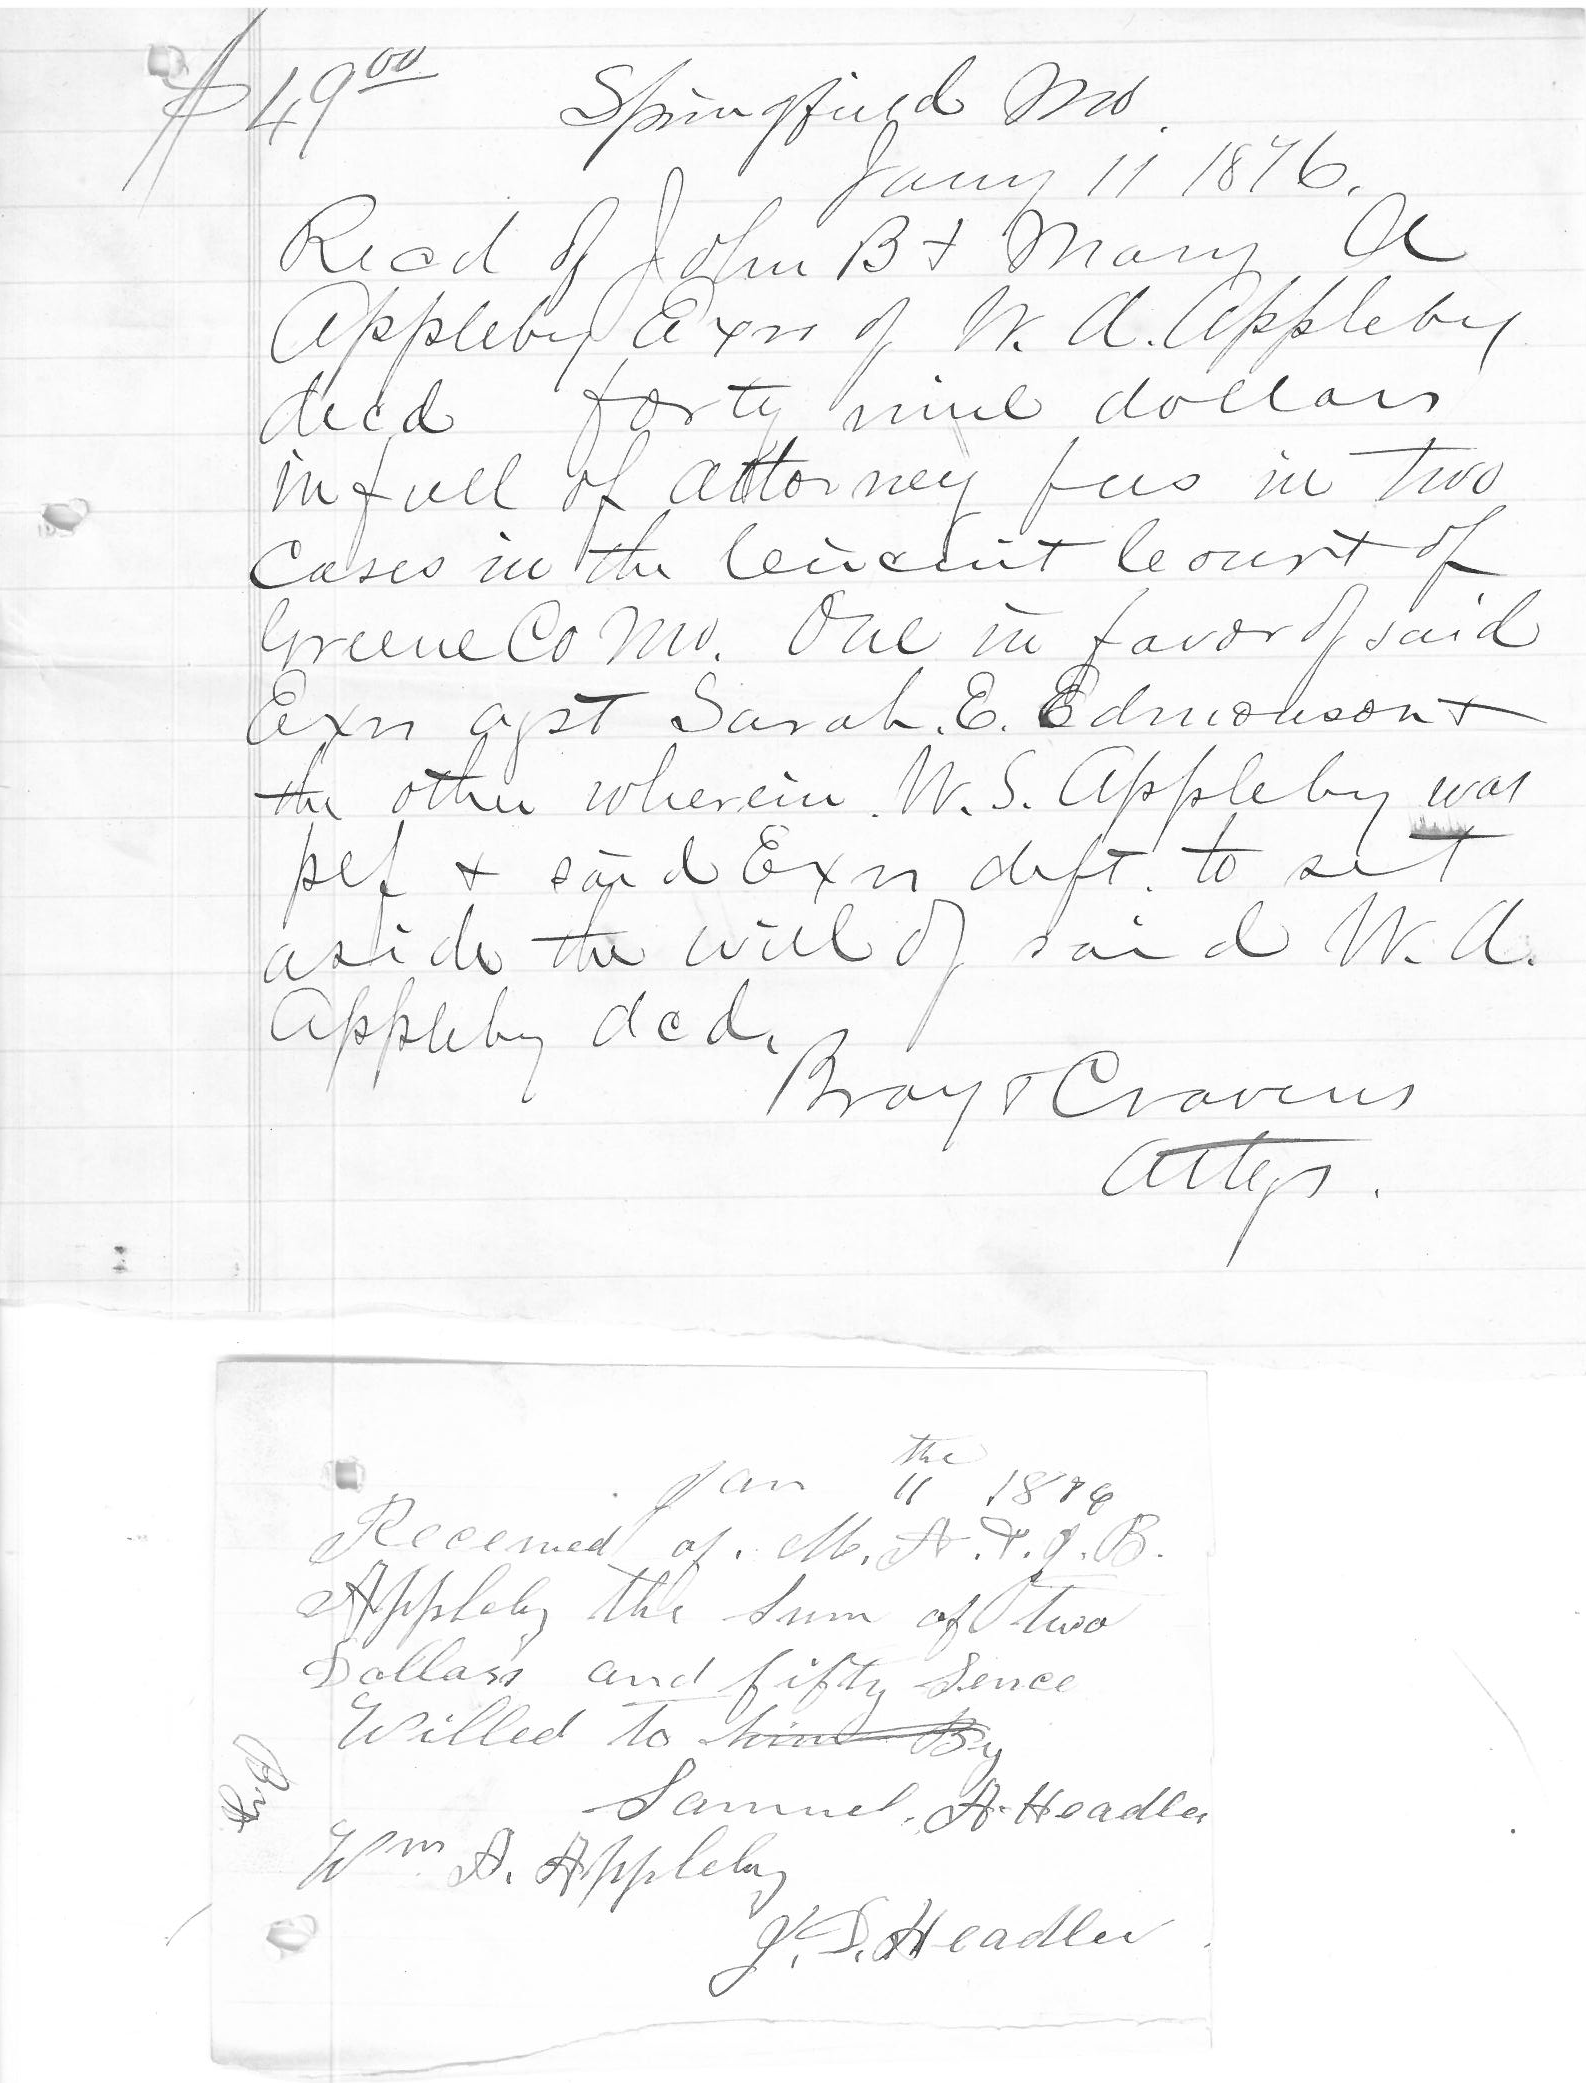 $49 00 Springfield Mo.
Jany 11 1876.
Recd of John B & Mary A
Appleby Exrs of W. A. Appleby
decd forty nine dollars
in full of attorney fees in two
cases in the Circuit Court of
Greene Co Mo. One in favor of said
Exrs agst Sarah. E. Edmonson &
the other wherein W. S. Appleby was
plf & said Exrs deft. to set
aside the will of said W. A.
Appleby dcd.
Bray & Cravens
Attys.
Jan 11 the 1876
Received of. M. A. & J. B.
Appleby the sum of two
Dollars and fifty Sence
Willed to him By
Samuel. A. Headlee
Wm A. Appleby
J. D. Headlee
By